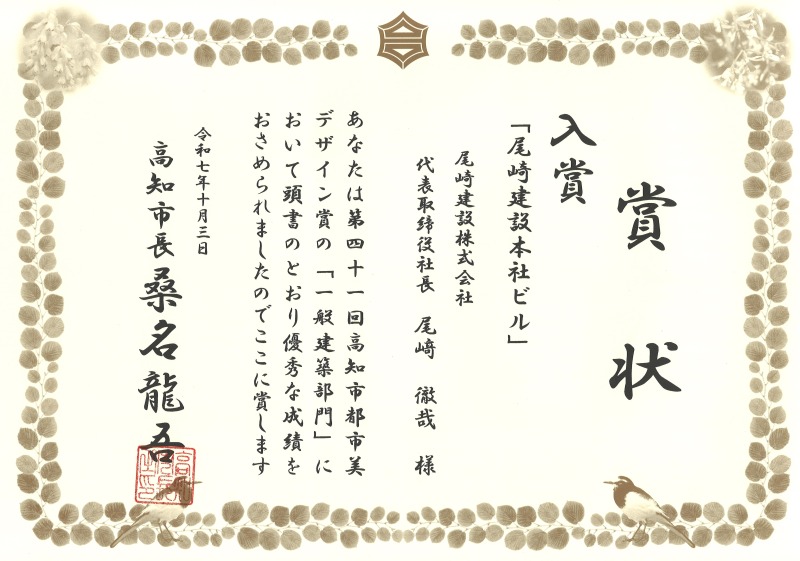 賞状
入賞
「尾崎建設本社ビル」
尾崎建設株式会社
代表取締役社長 尾﨑 徹哉 様
あなたは第四十一回高知市都市美
デザイン賞の「一般建築部門」に
おいて頭書のとおり優秀な成績を
おさめられましたのでここに賞します
令和七年十月三日
高知市長 桑名龍吾